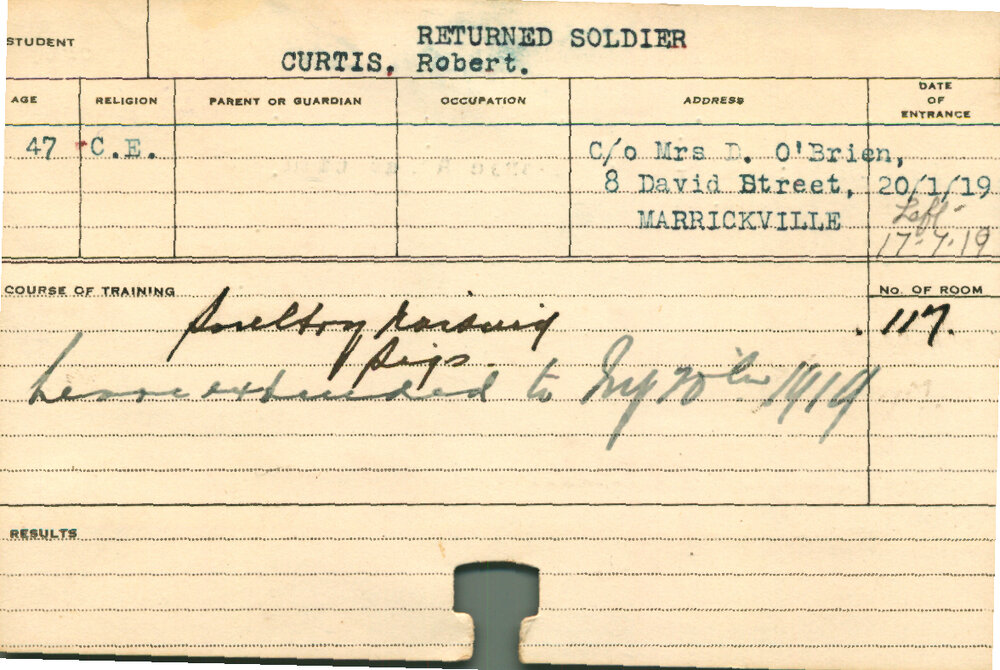 STUDENT
RETURNED SOLDIER
CURTIS, Robert.
AGE RELIGION PARENT OR GUARDIAN OCCUPATION ADDRESS DATE OF ENTRANCE
47 C.E. C/o Mrs D. O'Brien,
8 David Street, 20/1/19
MARRICKVILLE Left
17-7-19
COURSE OF TRAINING No. OF ROOM
Poultry raising 117.
Pigs.
Leave extended to 1919
RESULTS